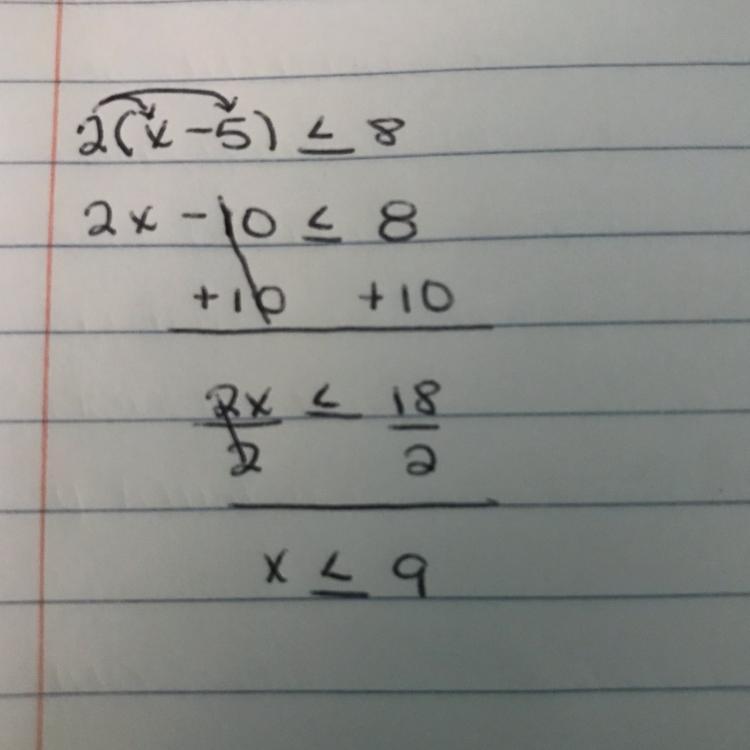 2(x-5) ≤ 8
2x - 10 ≤ 8
+10 +10
2x/2 ≤ 18/2
x ≤ 9